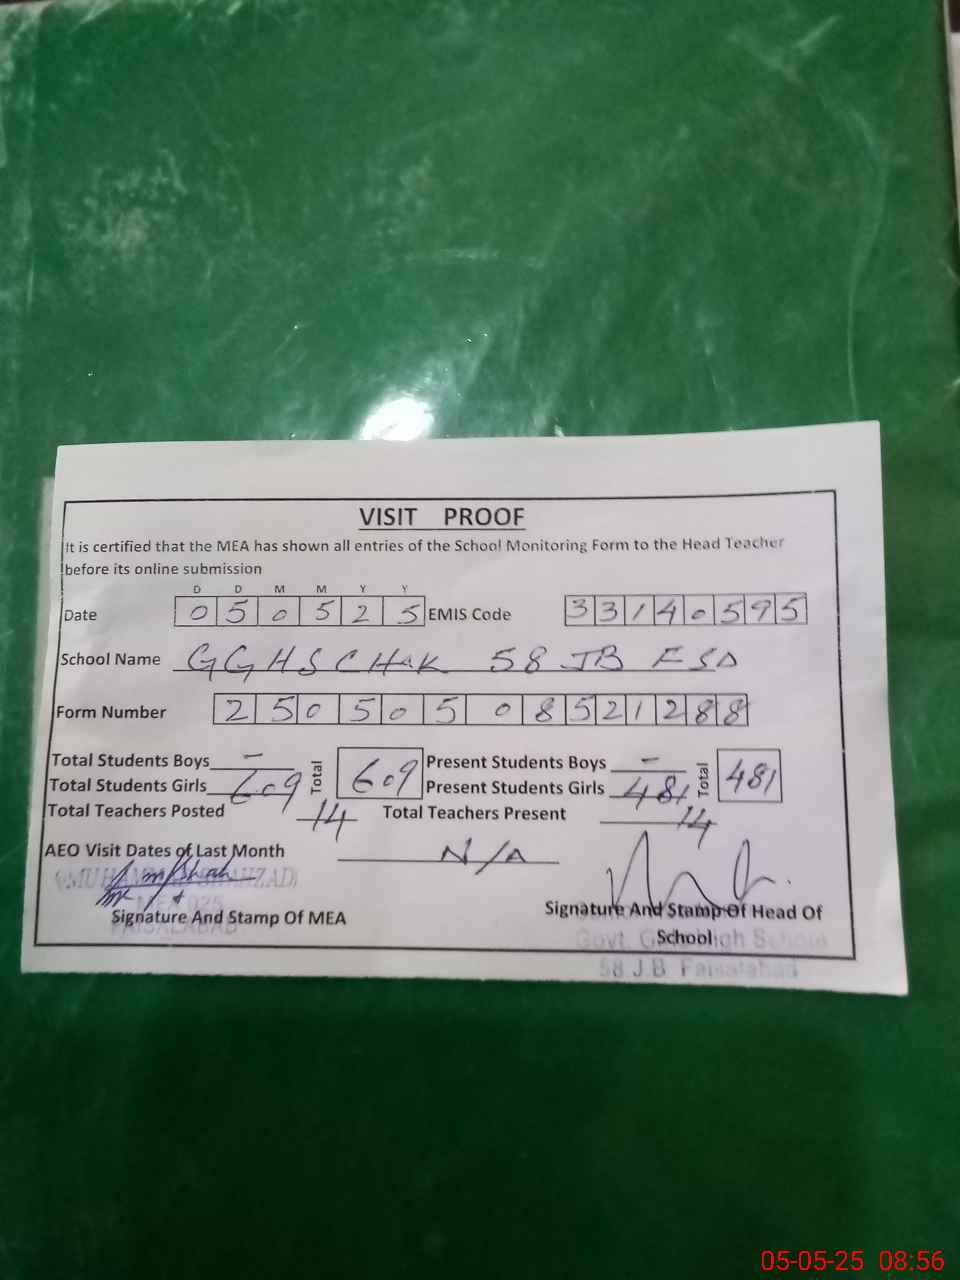 VISIT PROOF
It is certified that the MEA has shown all entries of the School Monitoring Form to the Head Teacher
before its online submission
D D M M Y Y
Date 0 5 0 5 2 5 EMIS Code 3 3 1 4 0 5 9 5
School Name GGHS CHAK 58 JB FSD
Form Number 2 5 0 5 0 5 0 8 5 2 1 2 8 8
Total Students Boys - Total 609 Present Students Boys - Total 481
Total Students Girls 609 Present Students Girls 481
Total Teachers Posted 14 Total Teachers Present 14
AEO Visit Dates of Last Month N/A
Signature And Stamp Of MEA
FAISALABAD
Signature And Stamp Of Head Of
School
58 J.B Faisalabad
05-05-25 08:56